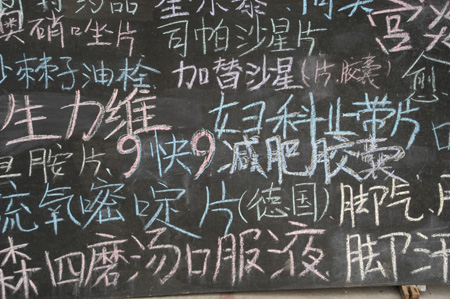 药品
奥硝唑片 司帕沙星片 宫炎
棘子油栓 加替沙星(片.胶囊) 愈
生力维 妇科止带片
胺片 9快9减肥胶囊
氧嘧啶片(德国) 脚气.
森四磨汤口服液 脚汗